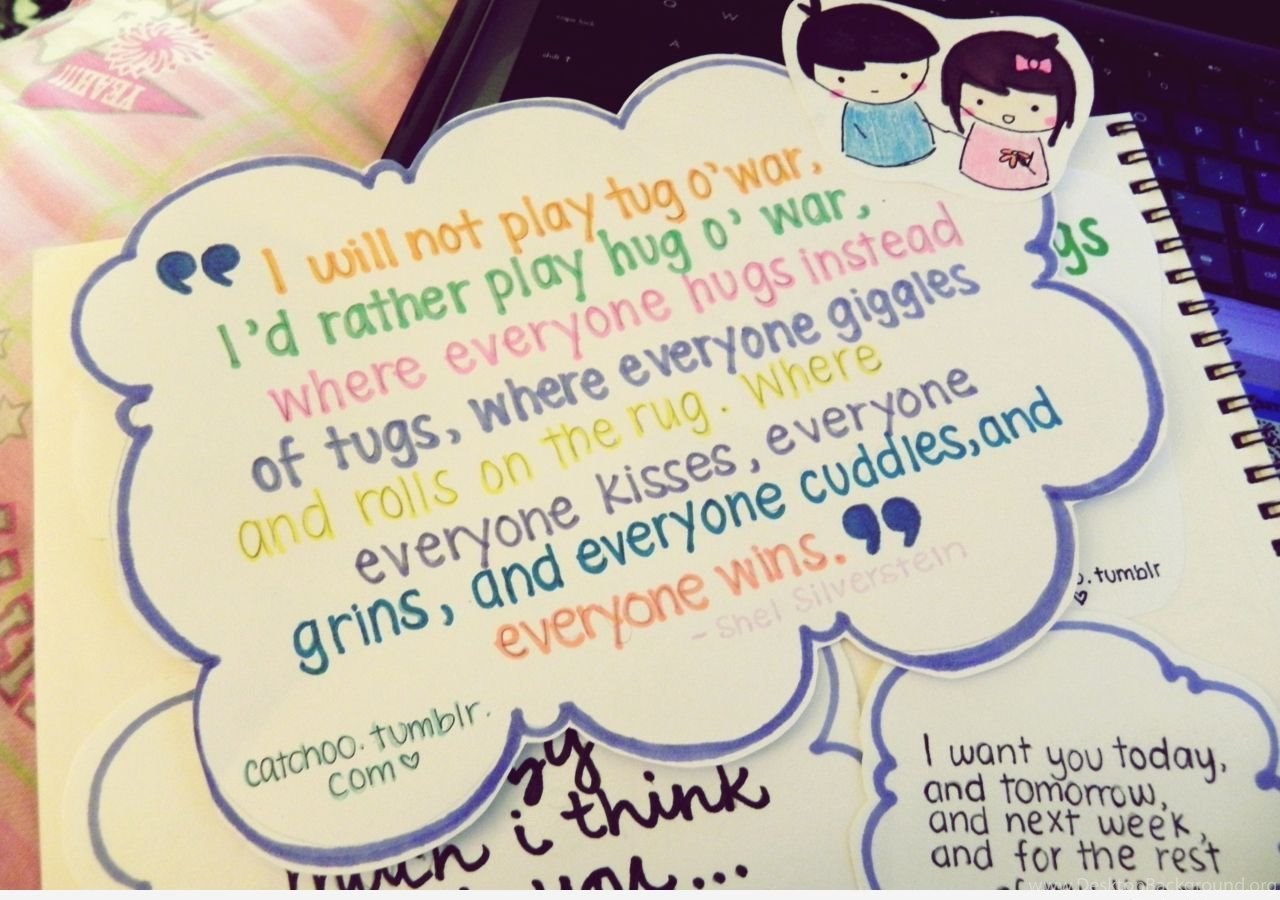 YEAH!!!
“ I will not play tug o' war,
I'd rather play hug o' war,
where everyone hugs instead
of tugs, where everyone giggles
and rolls on the rug. Where
everyone kisses, everyone
grins, and everyone cuddles, and
everyone wins. ”
- Shel Silverstein
catchoo.tumblr.
com♡
gs
o.tumblr
♡
zy
much i think
you...
I want you today,
and tomorrow,
and next week,
and for the rest
www.DesktopBackground.org